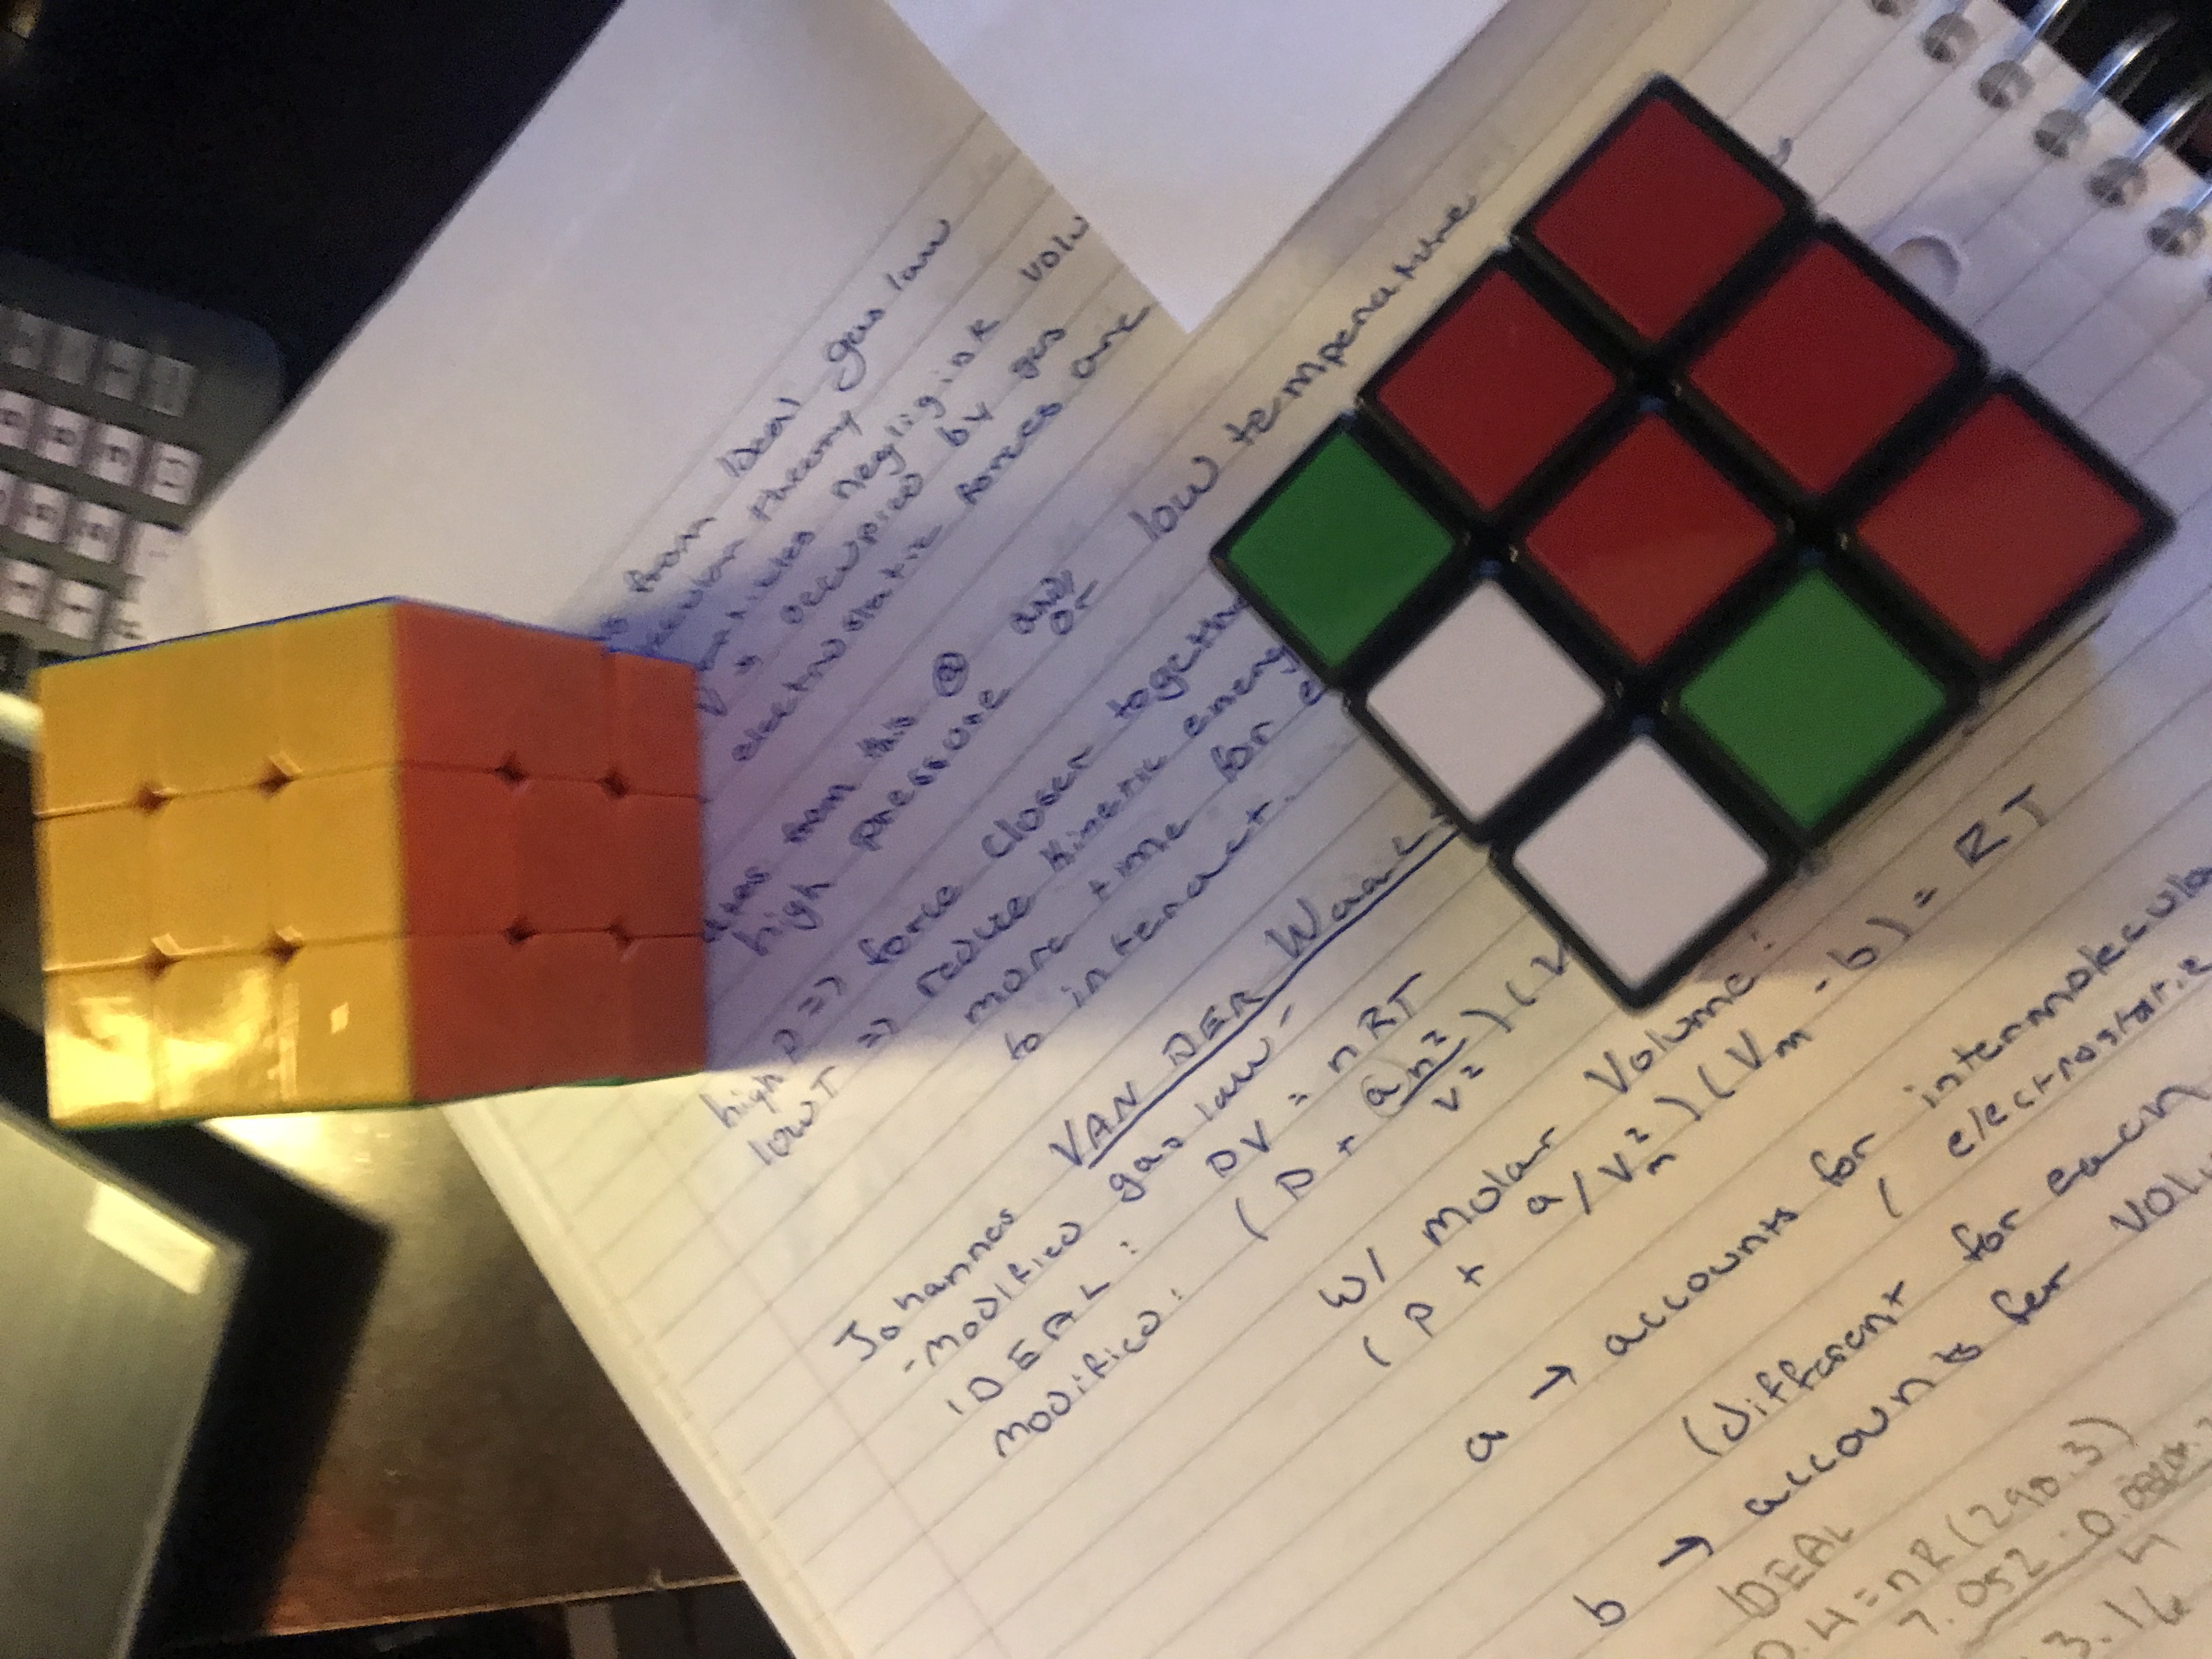 from Ideal gas law
theory
negligible volu
V is occupied by gas
electrostatic forces are
from this @ and/or low temperature
high pressure
high P => force closer together
low T => reduce kinetic energy
more time for
to interact.
Johannes VAN DER Waal
-modified gas law-
IDEAL: PV = nRT
modified: (P + an²/V²)(V
w/ molar Volume:
(P + a/Vm²)(Vm - b) = RT
a → accounts for intermolecula
(different for each
( electrostatic
b → accounts for Volu
IDEAL
0.4 = nR(290.3)
7.052
3.16